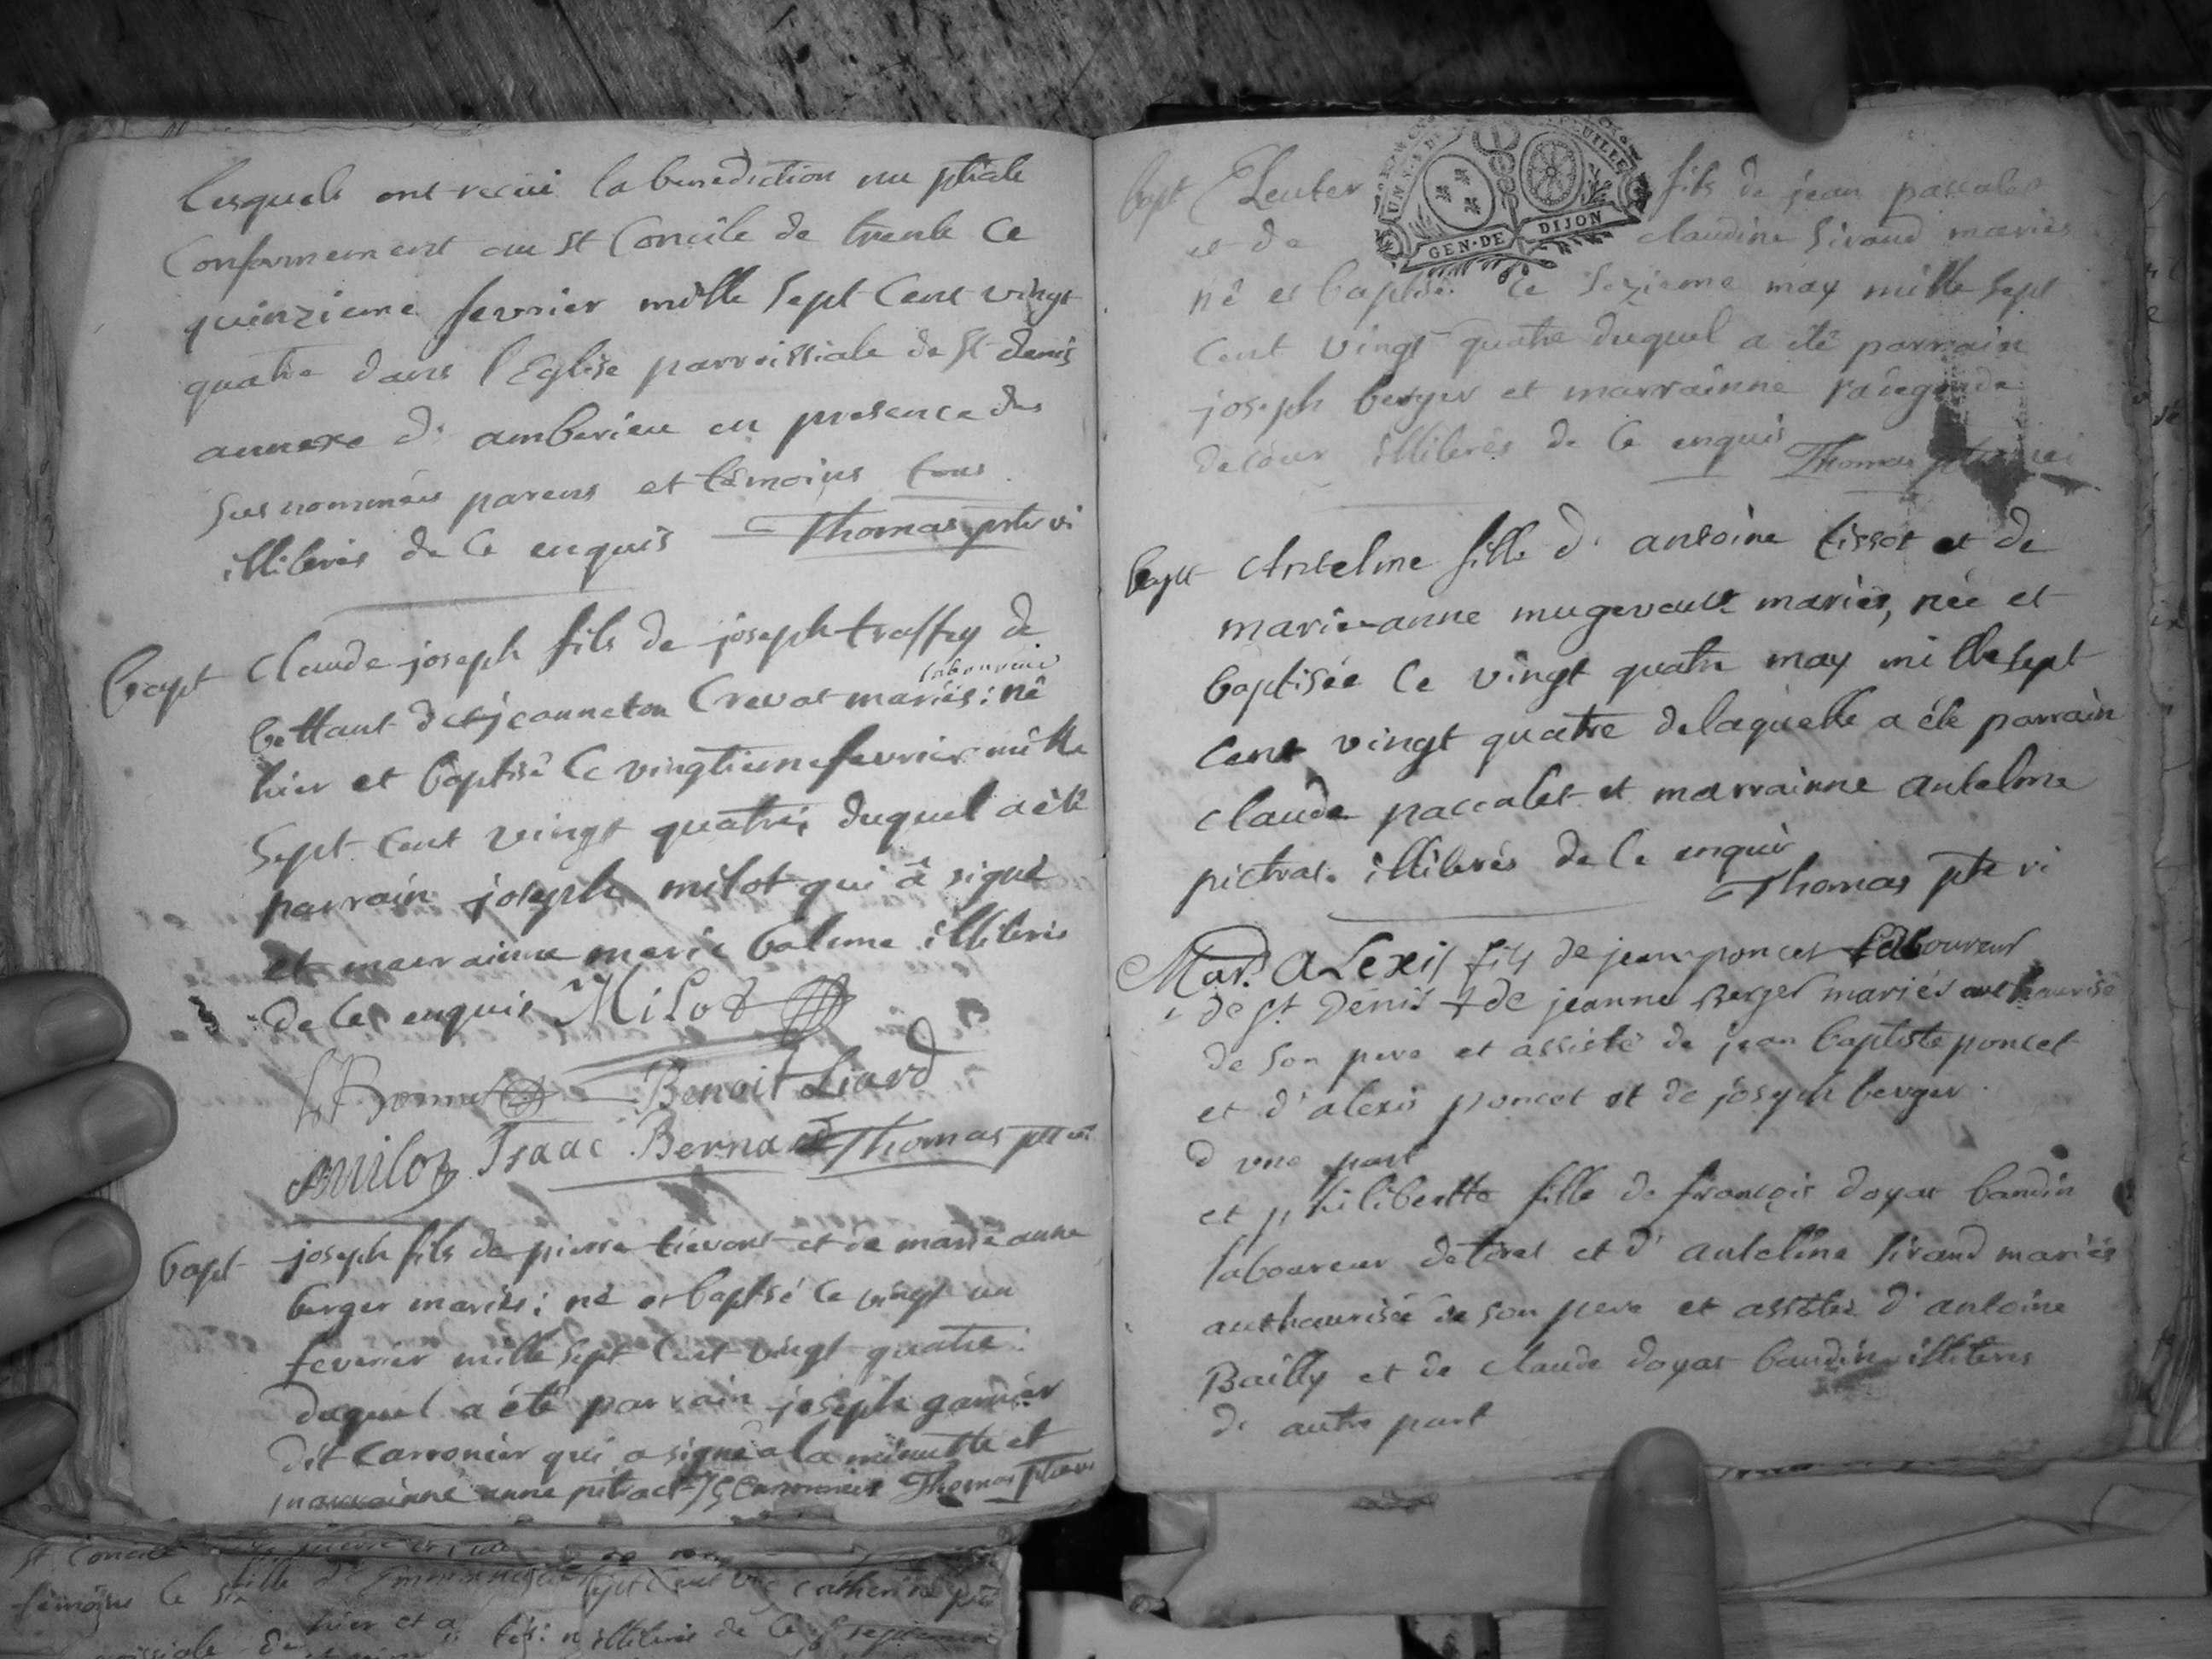 lesquels ont recüe la benediction nu ptiale
Conformement au St Concile de trente ce
quinzieme fevrier mille sept cent vingt
quatre dans l'Eglise parroissiale de St denis
annexe d' amberieu en presence des
susnommés parens et témoins tous
illiterés de ce enquis Thomas ptre vi
bapt Claude joseph fils de joseph traffey de
laboureur
bettant et de jeanneton Crevat mariés : né
hier et baptisé ce vingtieme fevrier mille
sept cent vingt quatre; duquel a été
parrain joseph milot qui â signé
et marrainne marie balme illiteris
de ce enquis Milot
Bonnet Benoit Liard
Milot Isaac Bernard Thomas ptre vi
bapt joseph fils de pierre tievent et de marie anne
berger mariés; né et baptisé ce vingt un
fevrier mille sept cent vingt quatre
duquel a été parrain joseph garnier
dit carronier qui a signé a la minutte et
marrainne anne pitrat Thomas ptre vi
UN S. 4 D.
GEN·DE DIJON
bapt Eleuter fils de jean paccalet
et de claudine sirand mariés
né et baptisé ce sezieme may mille sept
cent vingt quatre duquel a été parrain
joseph berger et marrainne radegonde
illiterés de ce enquis
Thomas ptre vi
bapt Antelme fille d' antoine tissot et de
marie-anne mugevaut mariés, née et
baptisée ce vingt quatre may mille sept
cent vingt quatre delaquelle a éte parrain
claude paccalet et marrainne antelme
pictrat. illiterés de ce enquis
Thomas ptre vi
Mar. aLexis fils de jean poncet laboureur
de St Denis & de jeanne Berger mariés authaurisé
de son pere et assisté de jean baptiste poncet
et d'alexis poncet et de joseph berger
d une part
et philibertte fille de françois doyat baudin
laboureur de toret et d' antelme sirand mariés
authaurisée de son pere et assistée d' antoine
Bailly et de claude doyat baudin illiteres
d' autre part
St Concile
témoins le six
hier et
illiterés de ce